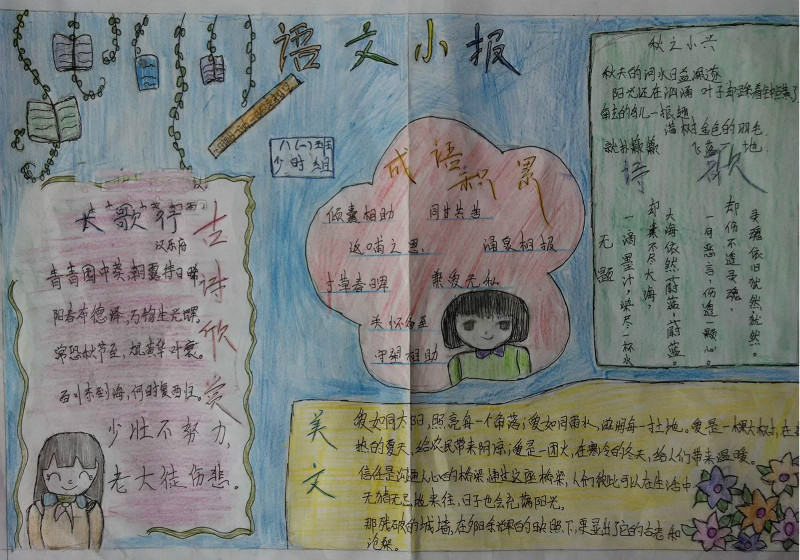 语文小报
八(一)班
少时组
长歌行
汉乐府
青青园中葵,朝露待日晞
阳春布德泽,万物生光辉
常恐秋节至,焜黄华叶衰。
百川东到海,何时复西归。
少壮不努力,
老大徒伤悲。
古诗欣赏
成语积累
倾囊相助 同甘共苦
返哺之恩 涌泉相报
寸草春晖 兼爱无私
关怀备至
守望相助
秋之小兴
秋天的河水日益
阳光还在 叶子却
满树金色的羽毛,
诗歌
无题
一滴墨汁,染尽一杯水
却染不尽大海,
大海依然蔚蓝,蔚蓝。
一句恶言,伤透一颗心。
却伤不透灵魂,
灵魂依旧犹然,犹然。
美文
爱如同太阳,照亮每一个角落;爱如同雨水,滋润每一寸土地。爱是一棵大树,在
热的夏天,给农民带来阴凉;爱是一团火,在寒冷的冬天,给人们带来温暖。
信任是沟通人心的桥梁,通过这座桥梁,人们彼此可以在生活中
无猜无忌地来往,日子也会充满阳光。
那残破的城墙,在夕阳余晖的映照下,更显出了它的古老和
沧桑。